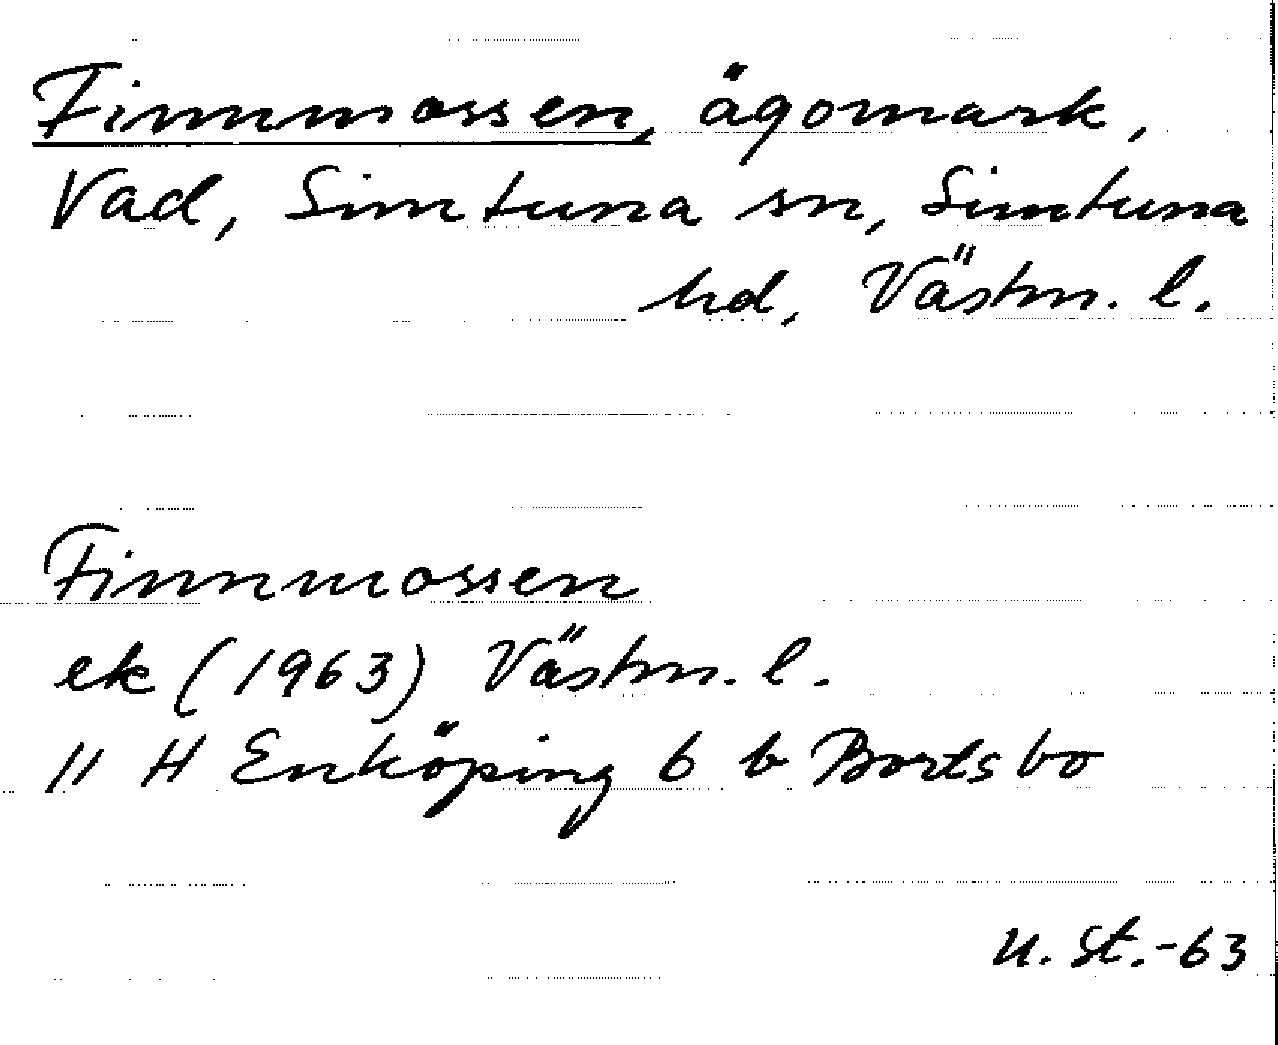 Finnmossen, ägomark,
Vad, Simtuna sn, Simtuna
hd, Västm. l.
Finnmossen
ek (1963) Västm. l.
11 H Enköping 6 b Bortsbo
U. St.-63